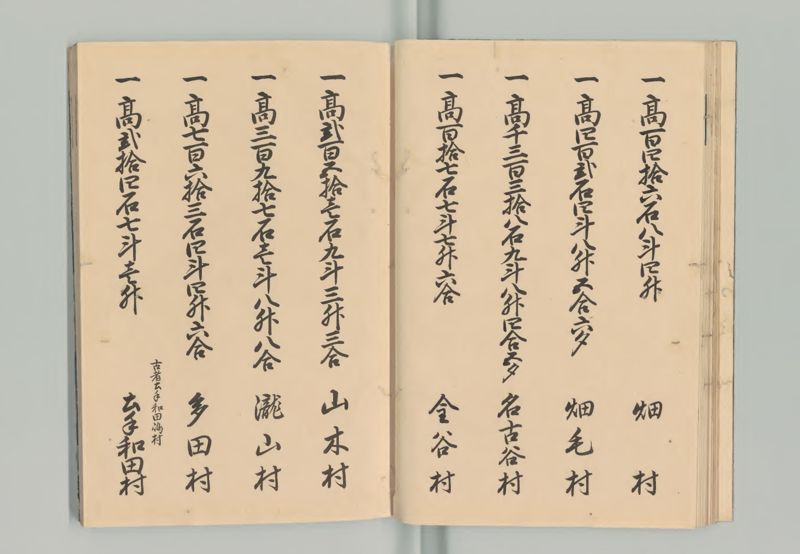 一高百四拾六石八斗四升　畑村
一高四百弐石四斗八升五合六夕　畑毛村
一高千三百三拾八石九斗八升四合五夕　名古谷村
一高百拾七石七斗七升六合　金谷村
一高弐百五拾壱石九斗三升三合　山木村
一高三百九拾七石壱斗八升八合　瀧山村
一高七百六拾三石四斗四升六合　多田村
古者
和田嶋村
一高弐拾四石七斗壱升　和田村